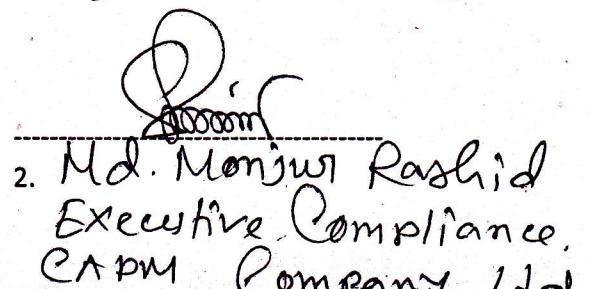 2. Md. Monjur Rashid
Executive Compliance.
CAPM Company Ltd